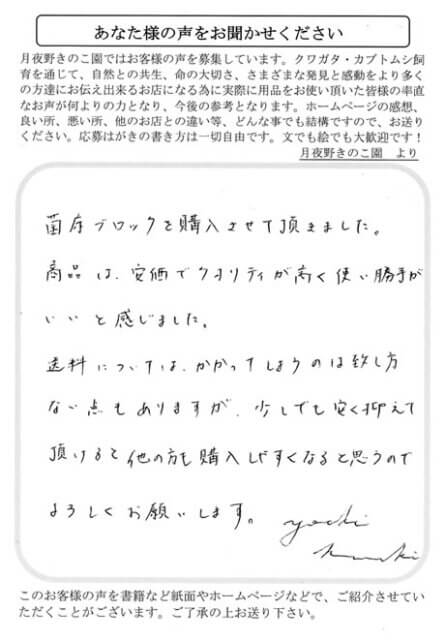 あなた様の声をお聞かせください
月夜野きのこ園ではお客様の声を募集しています。クワガタ・カブトムシ飼
育を通じて、自然との共生、命の大切さ、さまざまな発見と感動をより多く
の方達にお伝え出来るお店になる為に実際に用品をお使い頂いた皆様の率直
なお声が何よりの力となり、今後の参考となります。ホームページの感想、
良い所、悪い所、他のお店との違い等、どんな事でも結構ですので、お送り
ください。応募はがきの書き方は一切自由です。文でも絵でも大歓迎です!
月夜野きのこ園 より
菌床ブロックを購入させて頂きました。
商品は、安価でクオリティが高く使い勝手が
いいと感じました。
送料については、かかってしまうのは致し方
ない点もありますが、少しでも安く抑えて
頂けると他の方も購入しやすくなると思うので
よろしくお願いします。
このお客様の声を書籍など紙面やホームページなどで、ご紹介させてい
ただくことがございます。ご了承の上お送り下さい。